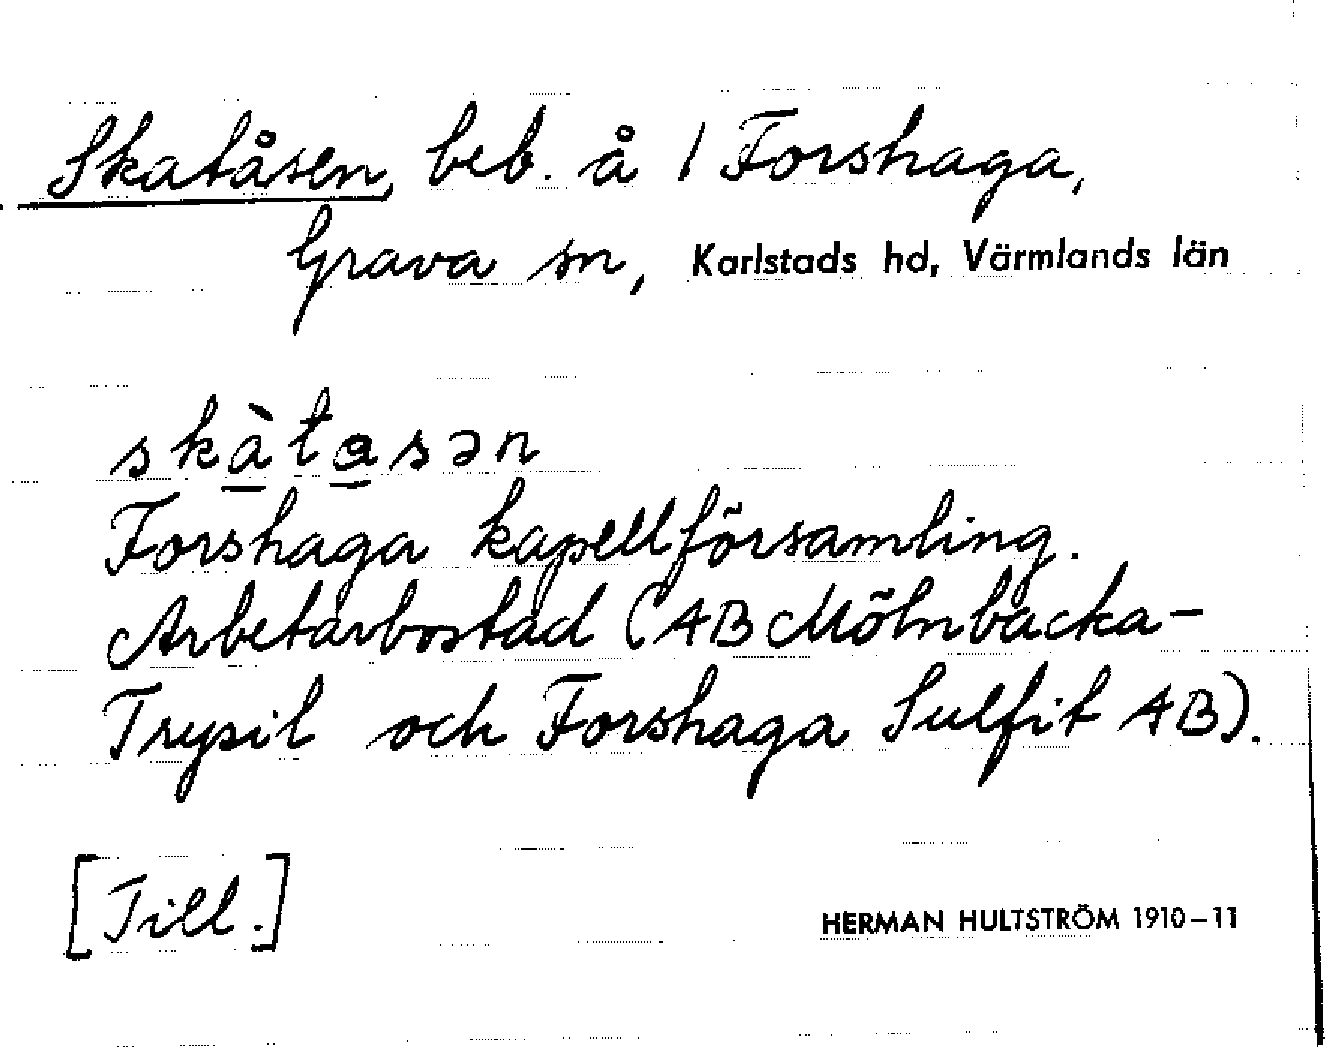 Skatåsen, beb. å 1 Forshaga,
Grava sn, Karlstads hd, Värmlands län
skàtasən
Forshaga kapellförsamling.
Arbetarbostad (AB Mölnbacka-
Trysil och Forshaga Sulfit AB).
[Till.]
HERMAN HULTSTRÖM 1910-11